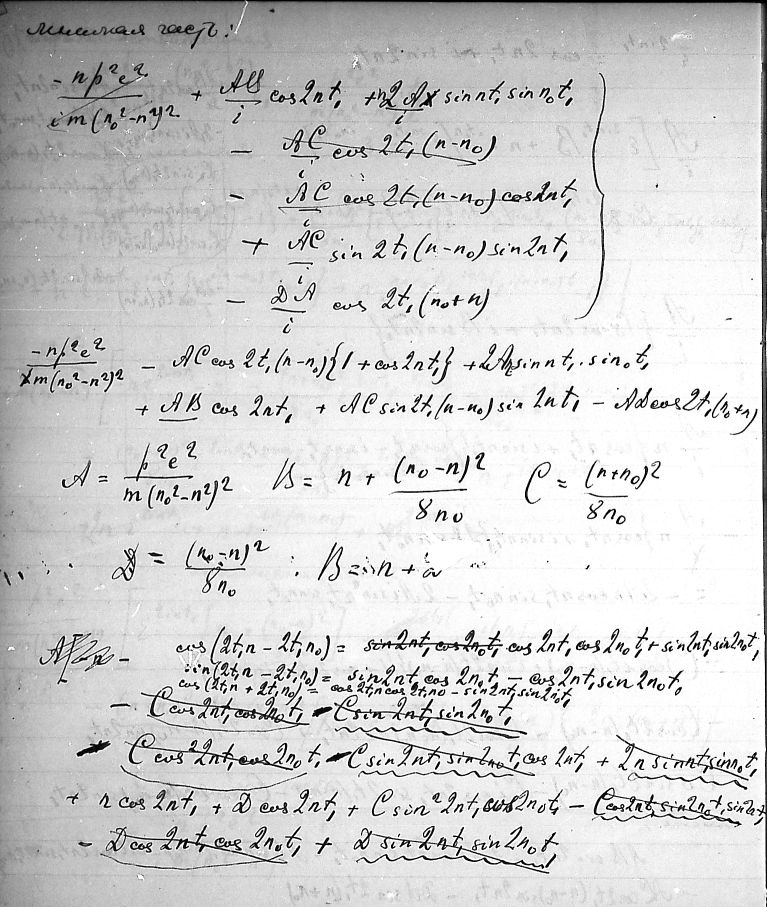 мнимая часть:
-np²e² / im(n₀²-n²)² + AB/i cos2nt₁ + n2A/i sinnt₁ sinn₀t₁
- AC/i cos 2t₁(n-n₀)
- AC/i cos 2t₁(n-n₀) cos2nt₁
+ AC/i sin 2t₁(n-n₀) sin2nt₁
- DA/i cos 2t₁(n₀+n)
-np²e² / m(n₀²-n²)² - AC cos 2t₁(n-n₀){1+cos2nt₁} + 2An sinnt₁·sinn₀t₁
+ AB cos 2nt₁ + AC sin2t₁(n-n₀) sin 2nt₁ - AD cos2t₁(n₀+n)
A = p²e² / m(n₀²-n²)² B = n + (n₀-n)² / 8n₀ C = (n+n₀)² / 8n₀
D = (n₀-n)² / 8n₀ B = n +
cos(2t₁n - 2t₁n₀) = sin2nt₁ cos2n₀t₁ cos 2nt₁ cos2n₀t₁ + sin2nt₁ sin2n₀t₁
sin(2t₁n - 2t₁n₀) = sin2nt₁ cos 2n₀t₁ - cos2nt₁ sin2n₀t₁
cos(2t₁n + 2t₁n₀) = cos2t₁n cos2t₁n₀ - sin2nt₁ sin2n₀t₁
- C cos2nt₁ cos2n₀t₁ - C sin2nt₁ sin2n₀t₁
- C cos²2nt₁ cos2n₀t₁ - C sin2nt₁ sin2n₀t₁ cos 2nt₁ + 2n sinnt₁ sinn₀t₁
+ n cos2nt₁ + D cos2nt₁ + C sin²2nt₁ cos2n₀t₁ - C cos2nt₁ sin2n₀t₁ sin2nt₁
- D cos 2nt₁ cos 2n₀t₁ + D sin2nt₁ sin2n₀t₁